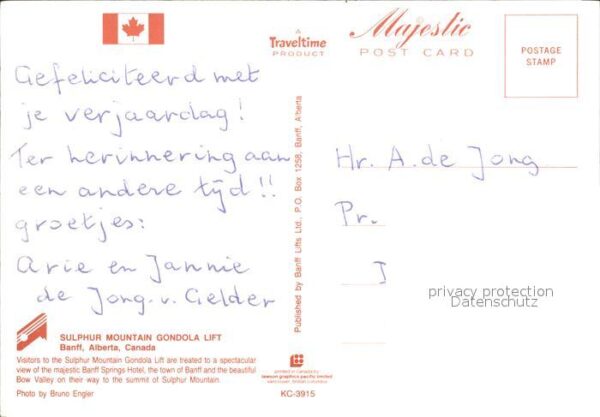 A
Traveltime
PRODUCT
Majestic
POST CARD
POSTAGE
STAMP
Gefeliciteerd met
je verjaardag!
Ter herinnering aan
een andere tijd!!
groetjes:
Arie en Jannie
de Jong-v. Gelder
Published by Banff Lifts Ltd., P.O. Box 1258, Banff, Alberta
Hr. A. de Jong
Pr.
J
privacy protection
Datenschutz
SULPHUR MOUNTAIN GONDOLA LIFT
Banff, Alberta, Canada
Visitors to the Sulphur Mountain Gondola Lift are treated to a spectacular
view of the majestic Banff Springs Hotel, the town of Banff and the beautiful
Bow Valley on their way to the summit of Sulphur Mountain.
Photo by Bruno Engler
printed in Canada by
lawson graphics pacific limited
vancouver, british columbia
KC-3915